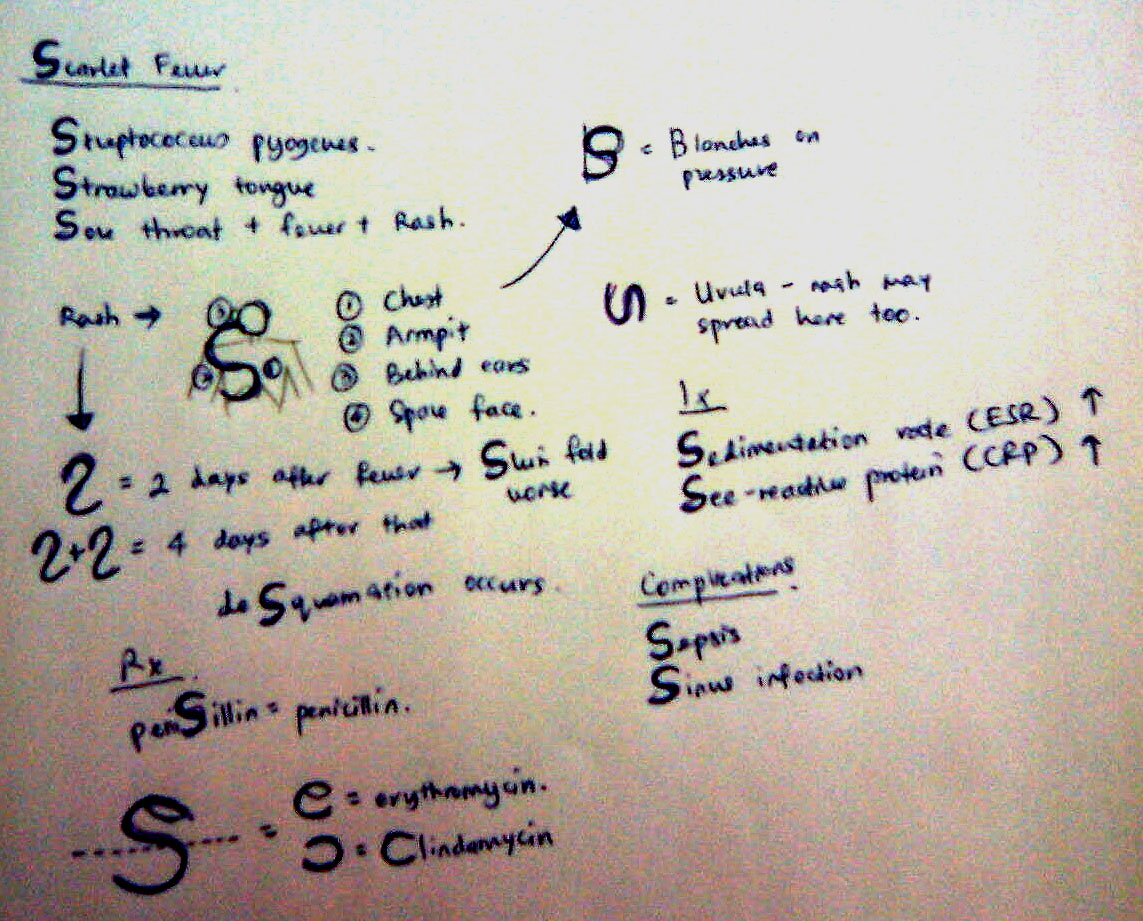 Scarlet Fever
Streptococcus pyogenes.
Strawberry tongue
Sore throat + fever + Rash.
Rash →
① Chest
② Armpit
③ Behind ears
④ Spare face.
B = Blanches on
pressure
S = Uvula - rash may
spread here too.
2 = 2 days after fever → Skin fold
worse
2+2 = 4 days after that
deSquamation occurs.
Ix
Sedimentation rate (ESR) ↑
See-reactive protein (CRP) ↑
Complications.
Sepsis
Sinus infection
Rx
peniSillin = penicillin.
S = e = erythromycin.
ɔ = Clindamycin